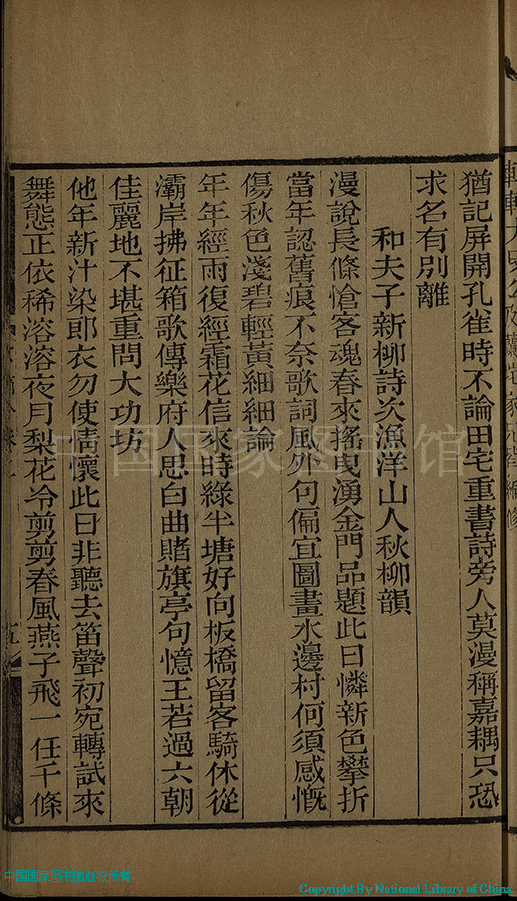 猶記屏開孔雀時不論田宅重書詩旁人莫漫稱嘉耦只恐
求名有別離
和夫子新柳詩次漁洋山人秋柳韻
漫說長條愴客魂春來搖曳湧金門品題此日憐新色攀折
當年認舊痕不奈歌詞風外句偏宜圖畫水邊村何須感慨
傷秋色淺碧輕黃細細論
年年經雨復經霜花信來時綠半塘好向板橋留客騎休從
灞岸拂征箱歌傳樂府人思白曲賭旗亭句憶王若過六朝
佳麗地不堪重問大功坊
他年新汁染郎衣勿使情懷此日非聽去笛聲初宛轉試來
舞態正依稀溶溶夜月梨花冷剪剪春風燕子飛一任千條
五
中国国家图书馆
中国国家图书馆版权所有
Copyright By National Library of China